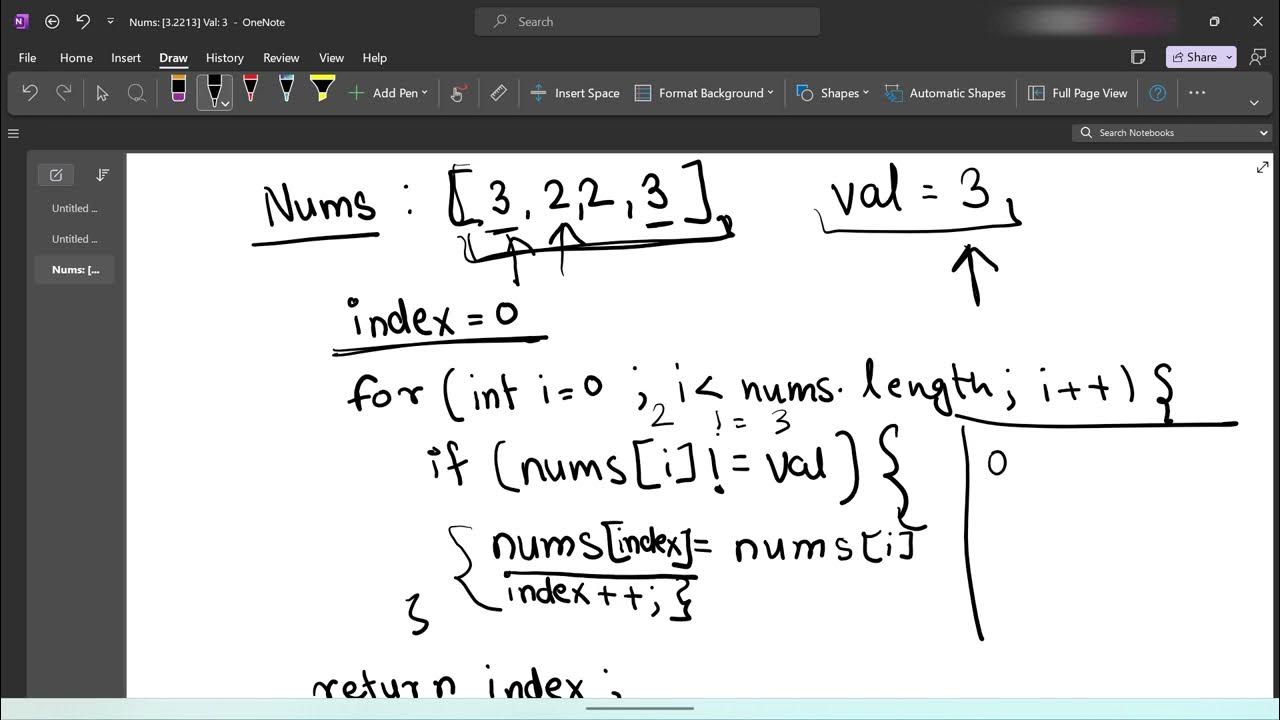 Nums: [3.2213] Val: 3 - OneNote
Search
File Home Insert Draw History Review View Help
Share
Add Pen
Insert Space
Format Background
Shapes
Automatic Shapes
Full Page View
Search Notebooks
Untitled ...
Untitled ...
Nums: [...
Nums : [3, 2,2, 3], val = 3,
index = 0
for (int i=0 ; i< nums.length; i++) {
2 != 3
if (nums[i] != val) {
0
{ nums[index] = nums[i]
index ++; }
}
return index ;